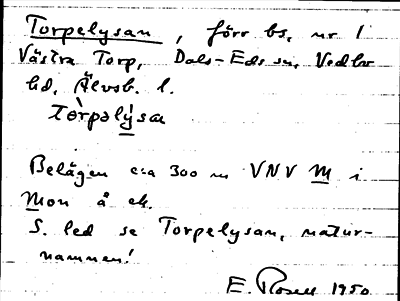 Torpelysan, förr bs, nr 1
Västra Torp, Dals-Eds sn, Vedbo
hd, Älvsb. l.
tòrpəlýsa
Belägen c:a 300 m VNV M i
Mon å ek.
S. led se Torpelysan, natur-
namnen!
E. Rosell 1950